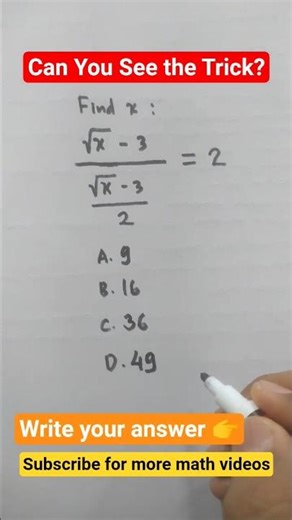 Can You See the Trick?
Find x :
√x - 3
√x - 3
2
= 2
A. 9
B. 16
C. 36
D. 49
Write your answer 👉
Subscribe for more math videos